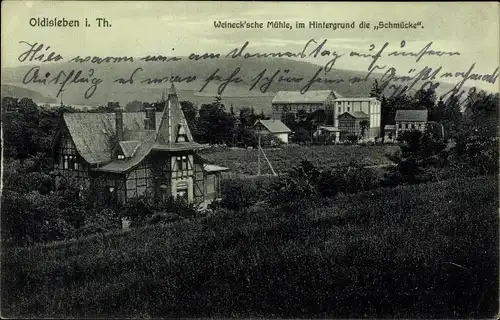 Oldisleben i. Th.
Weineck'sche Mühle, im Hintergrund die „Schmücke".
Hier waren wir am Donnerstag auf unserm
Ausflug es war sehr schön